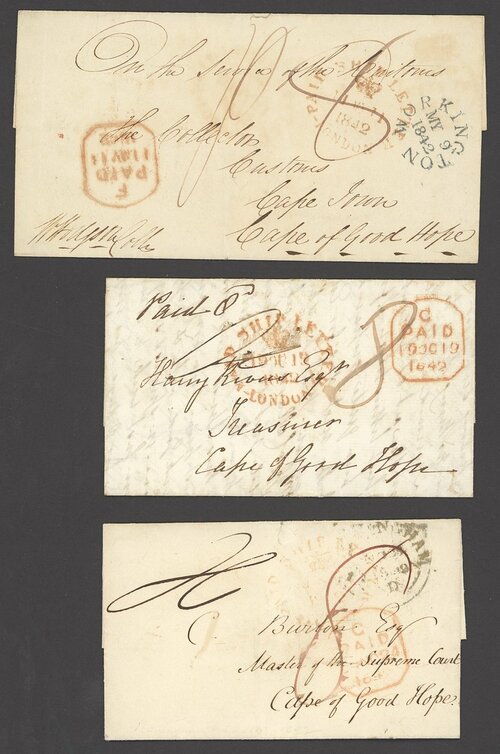 On the Service of the Customs
PAID SHIP LETTER
1842
LONDON
KINGTON
R
MY 9
1842
F
PAID
11 MY 11
The Collector
Customs
Cape Town
Cape of Good Hope
Paid 8
PAID SHIP LETTER
19 OC 19
LONDON
8
C
PAID
19 OC 19
1842
Harry Rivers Esqr
Treasurer
Cape of Good Hope
C
PAID
C. Burton Esq
Master of the Supreme Court
Cape of Good Hope